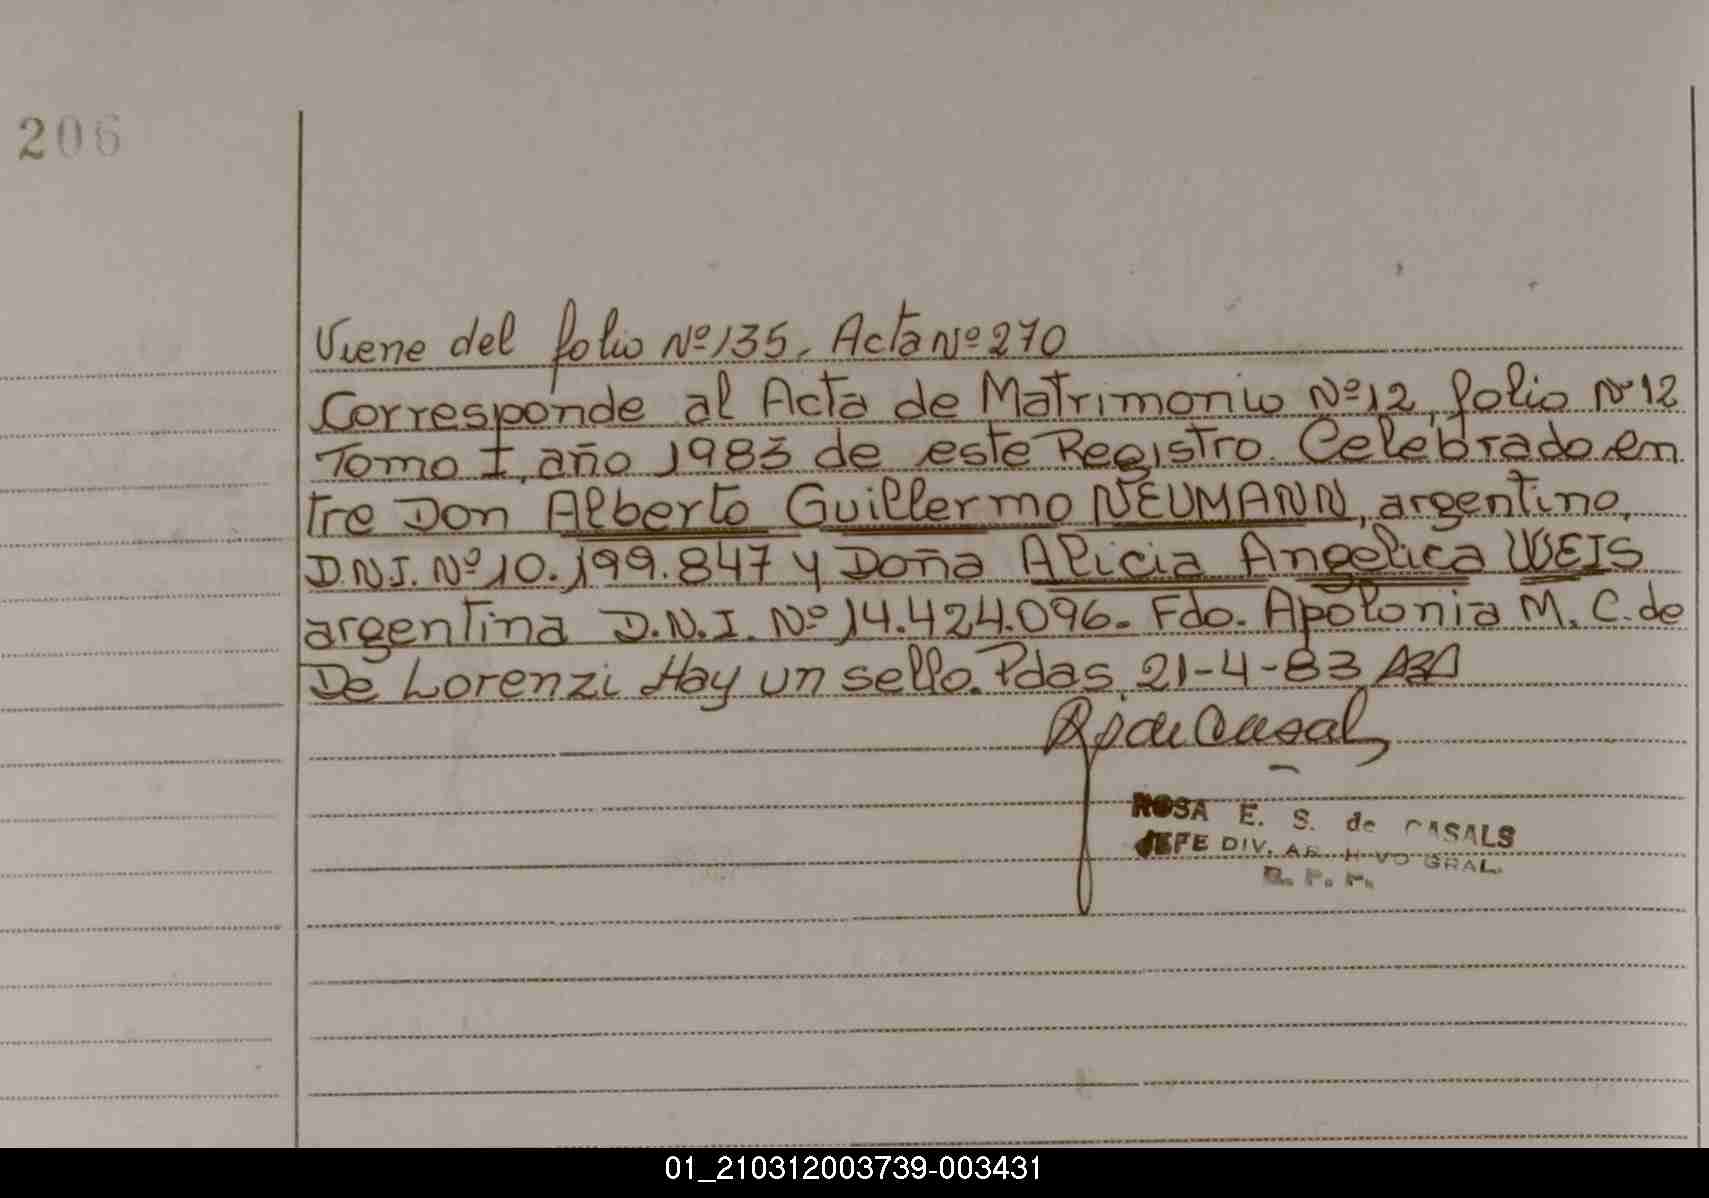 206
Viene del folio Nº 135, Acta Nº 270
Corresponde al Acta de Matrimonio Nº 12, folio Nº 12
Tomo I, año 1983 de este Registro. Celebrado en
tre Don Alberto Guillermo NEUMANN, argentino,
D.N.I. Nº 10.199.847 y Doña Alicia Angelica WEIS
argentina D.N.I. Nº 14.424.096. Fdo. Apolonia M. C. de
De Lorenzi Hay un sello. Pdas, 21-4-83
ROSA E. S. de CASALS
JEFE DIV. ARCHIVO GRAL.
01_210312003739-003431